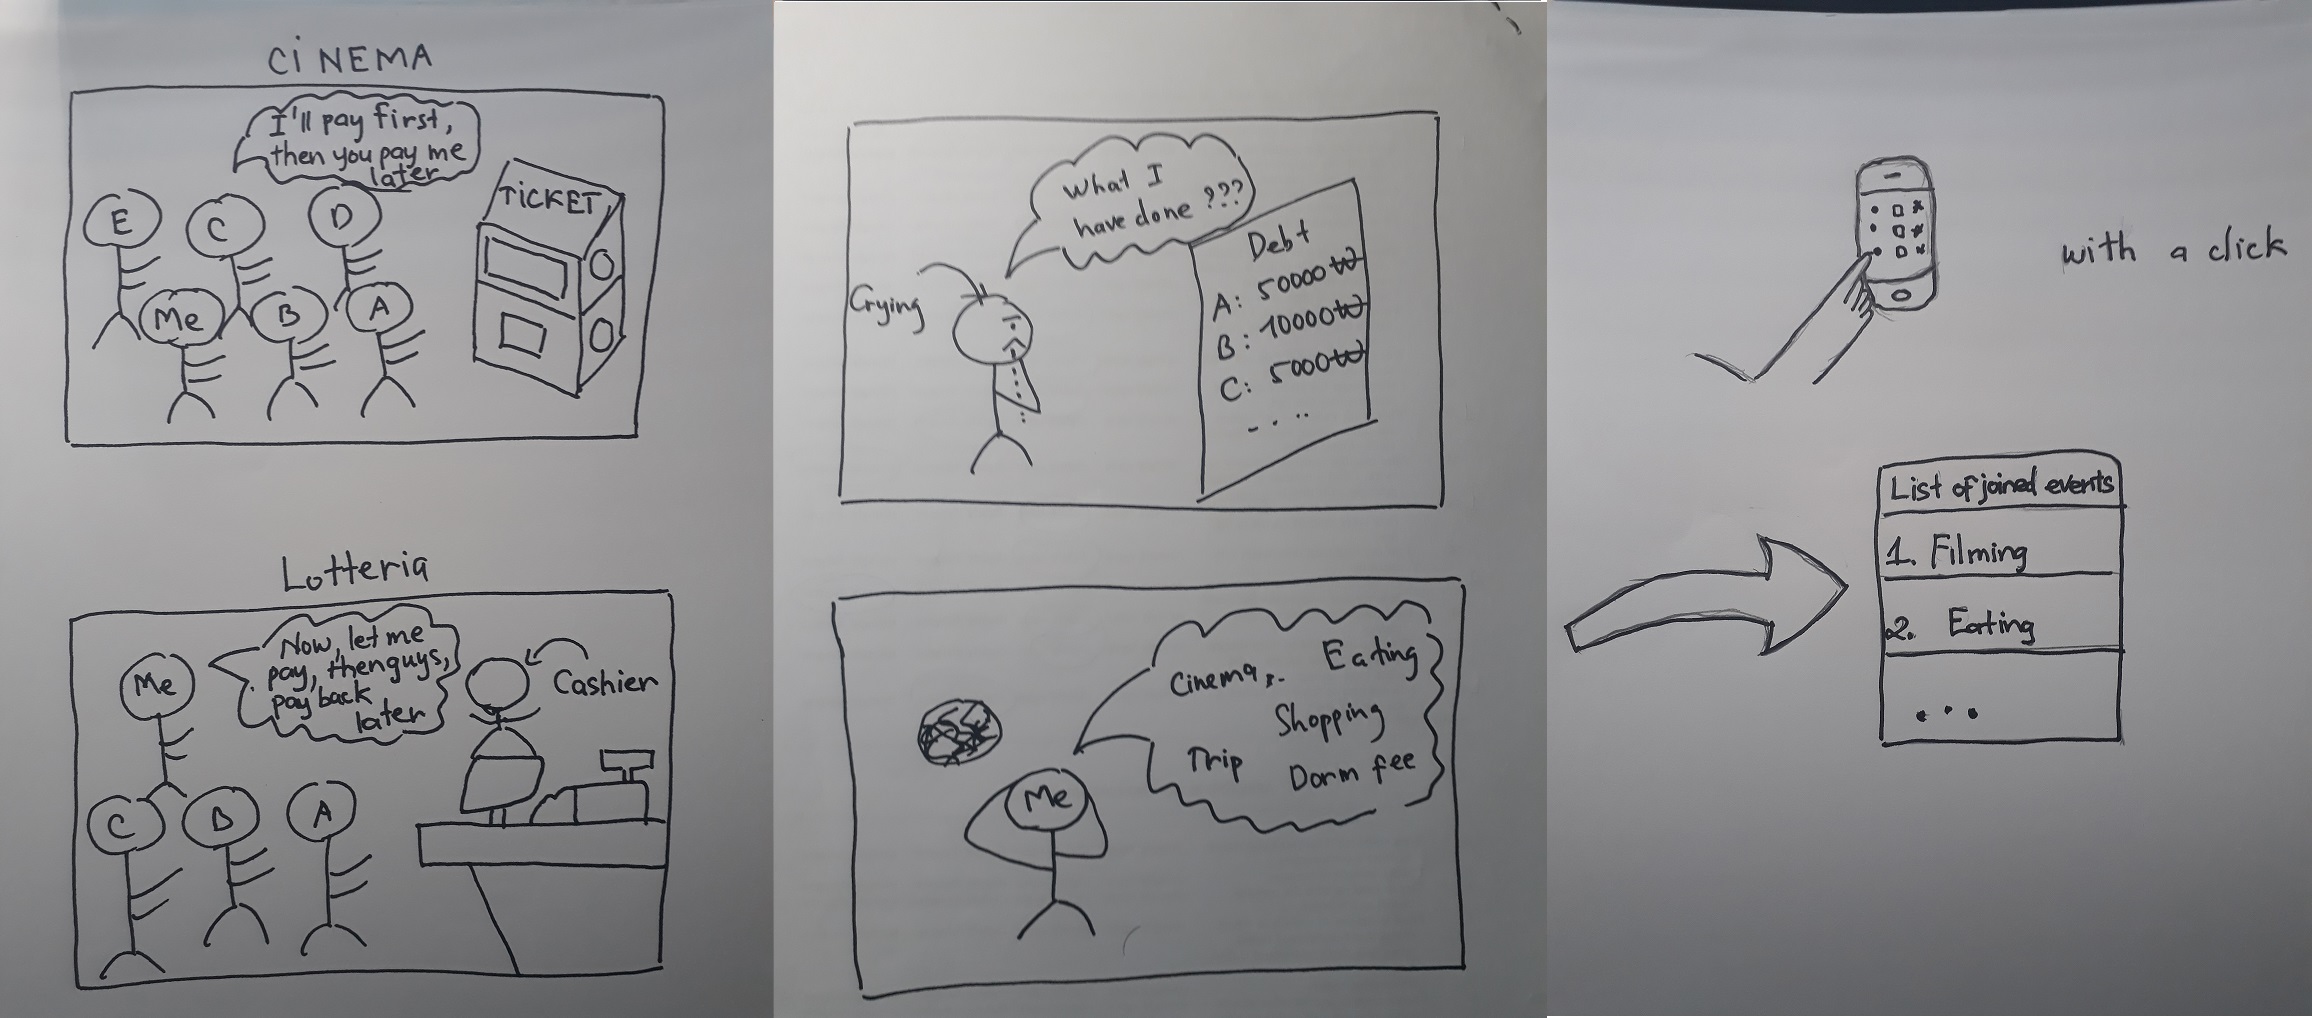 CINEMA
I'll pay first,
then you pay me
later
TICKET
E
C
D
Me
B
A
Lotteria
Now, let me
pay, then guys,
pay back
later
Me
Cashier
C
B
A
What I
have done ???
Crying
Debt
A: 50000₩
B: 10000₩
C: 5000₩
- . . .
Cinema,
Eating
Shopping
Trip
Dorm fee
Me
with a click
List of joined events
1. Filming
2. Eating
...